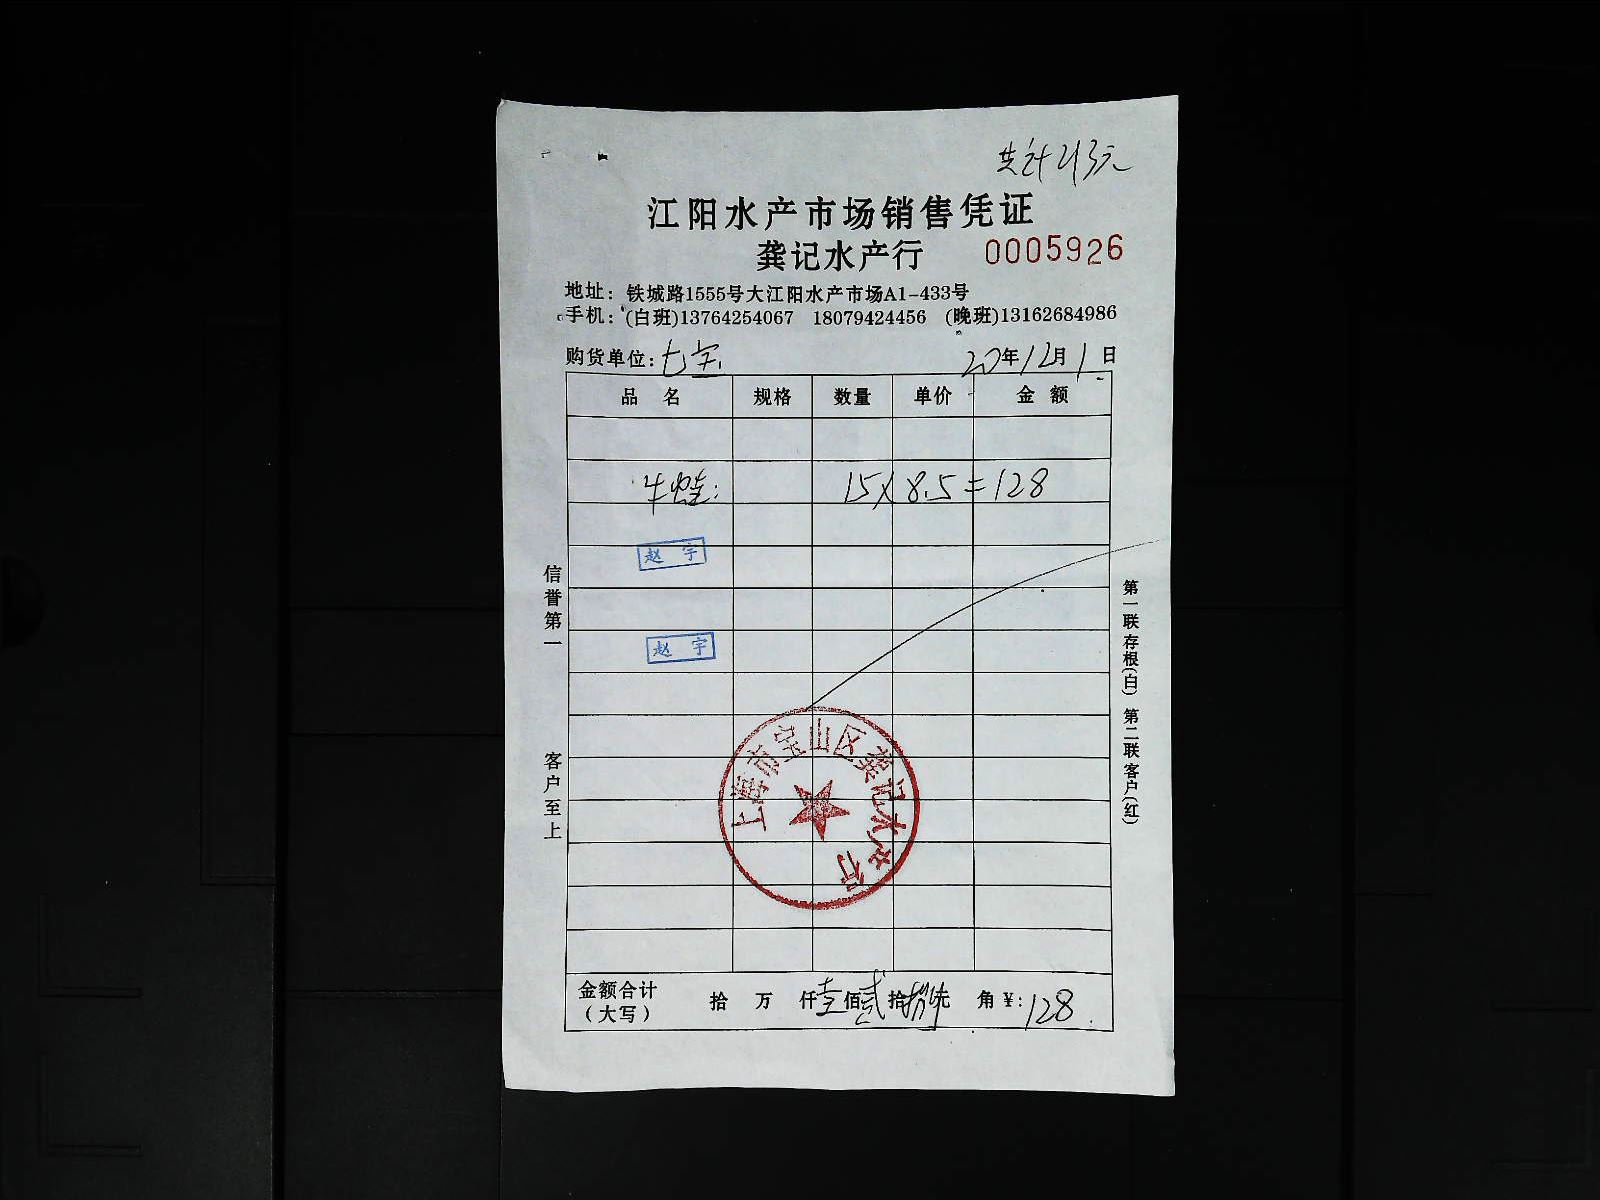 共计213元
江阳水产市场销售凭证
龚记水产行 0005926
地址：铁城路1555号大江阳水产市场A1-433号
手机：(白班)13764254067 18079424456 (晚班)13162684986
购货单位：七宝 20年12月1日
品名 规格 数量 单价 金额
牛蛙： 15×8.5=128
赵宇
赵宇
信誉第一
客户至上
第一联存根(白) 第二联客户(红)
上海市宝山区龚记水产行
金额合计（大写） 拾 万 仟壹佰贰拾捌元 角￥:128.